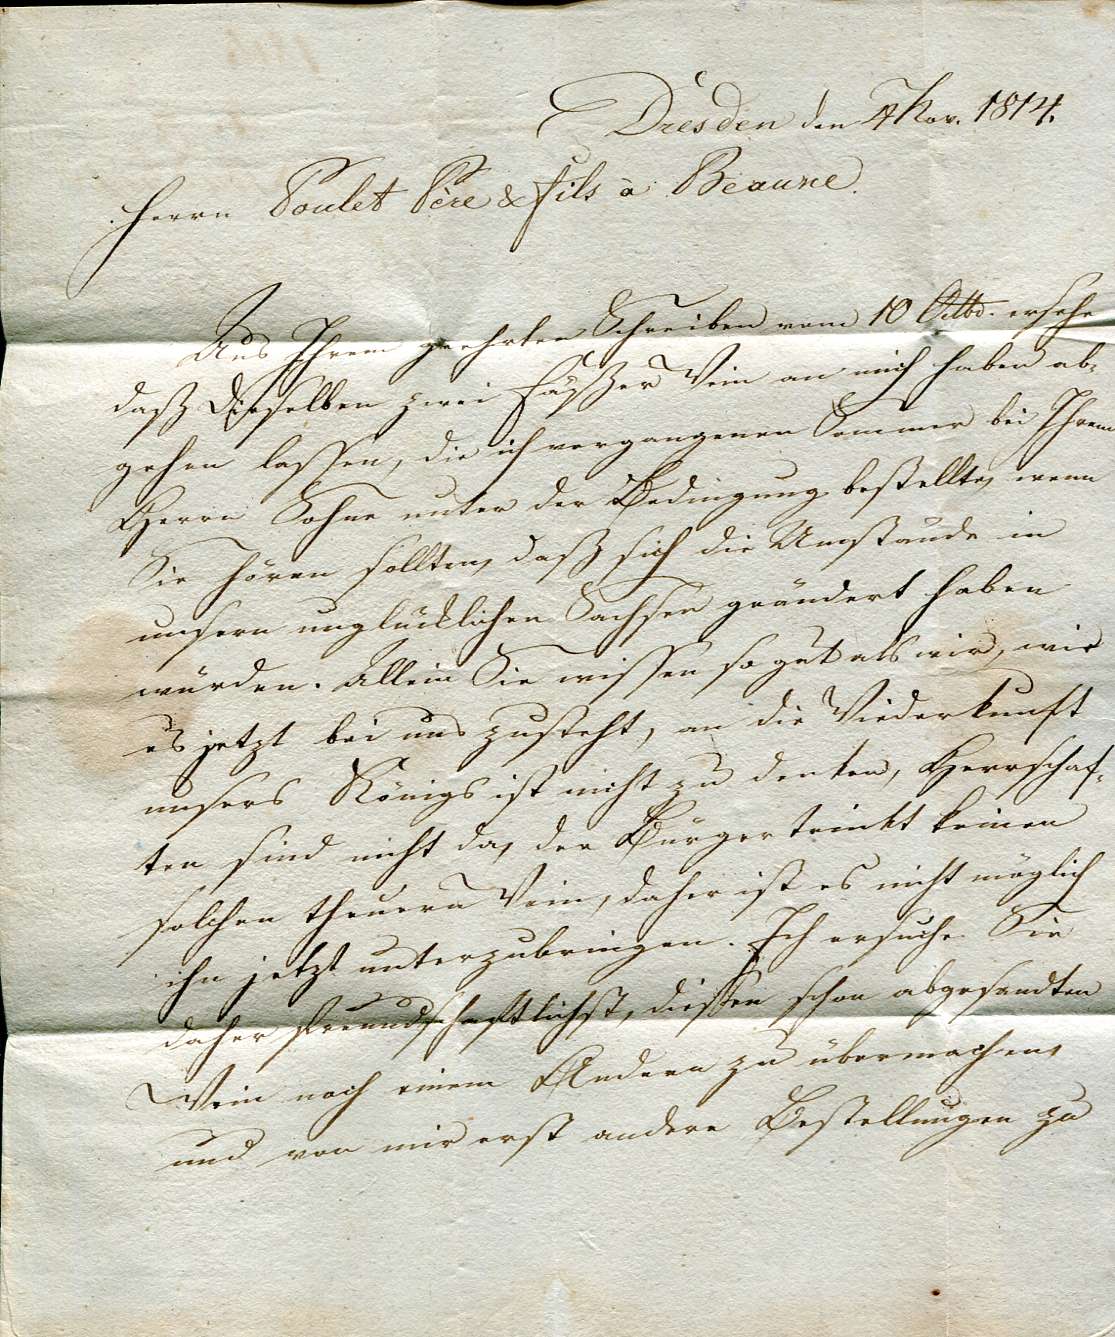 Dresden den 4 Nov. 1814.
Herrn Poulet Père & fils à Beaune.
Aus Ihrem geehrten Schreiben vom 10 Octbr. ersehe
daß dieselben zwei Fäßer Wein an mich haben ab-
gehen lassen, die ich vergangenen Sommer bei Ihrem
Herrn Sohne unter der Bedingung bestellte, wenn
Sie hören sollten, daß sich die Umstände in
unsern unglücklichen Sachsen geändert haben
würden. Allein Sie wissen so gut als wir, wie
es jetzt bei uns zusteht, an die Wiederkunft
unsers Königs ist nicht zu denken, Herrschaf-
ten sind nicht da, der Bürger trinkt keinen
solchen theuern Wein, daher ist es nicht möglich
ihn jetzt unterzubringen. Ich ersuche Sie
daher freundschaftlichst, diesen schon abgesandten
Wein noch einem Andern zu übermachen,
und von mir erst andere Bestellungen zu